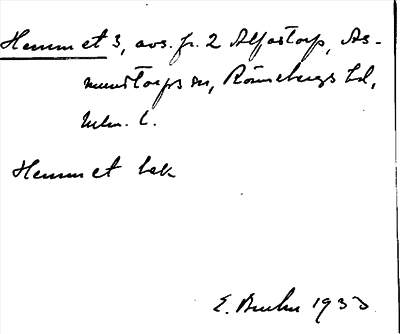 Hemmet 3, avs. fr. 2 Alfastorp, As-
mundtorps sn, Rönnebergs hd,
Mlm. l.
Hemmet bek
E. Bruhn 1933